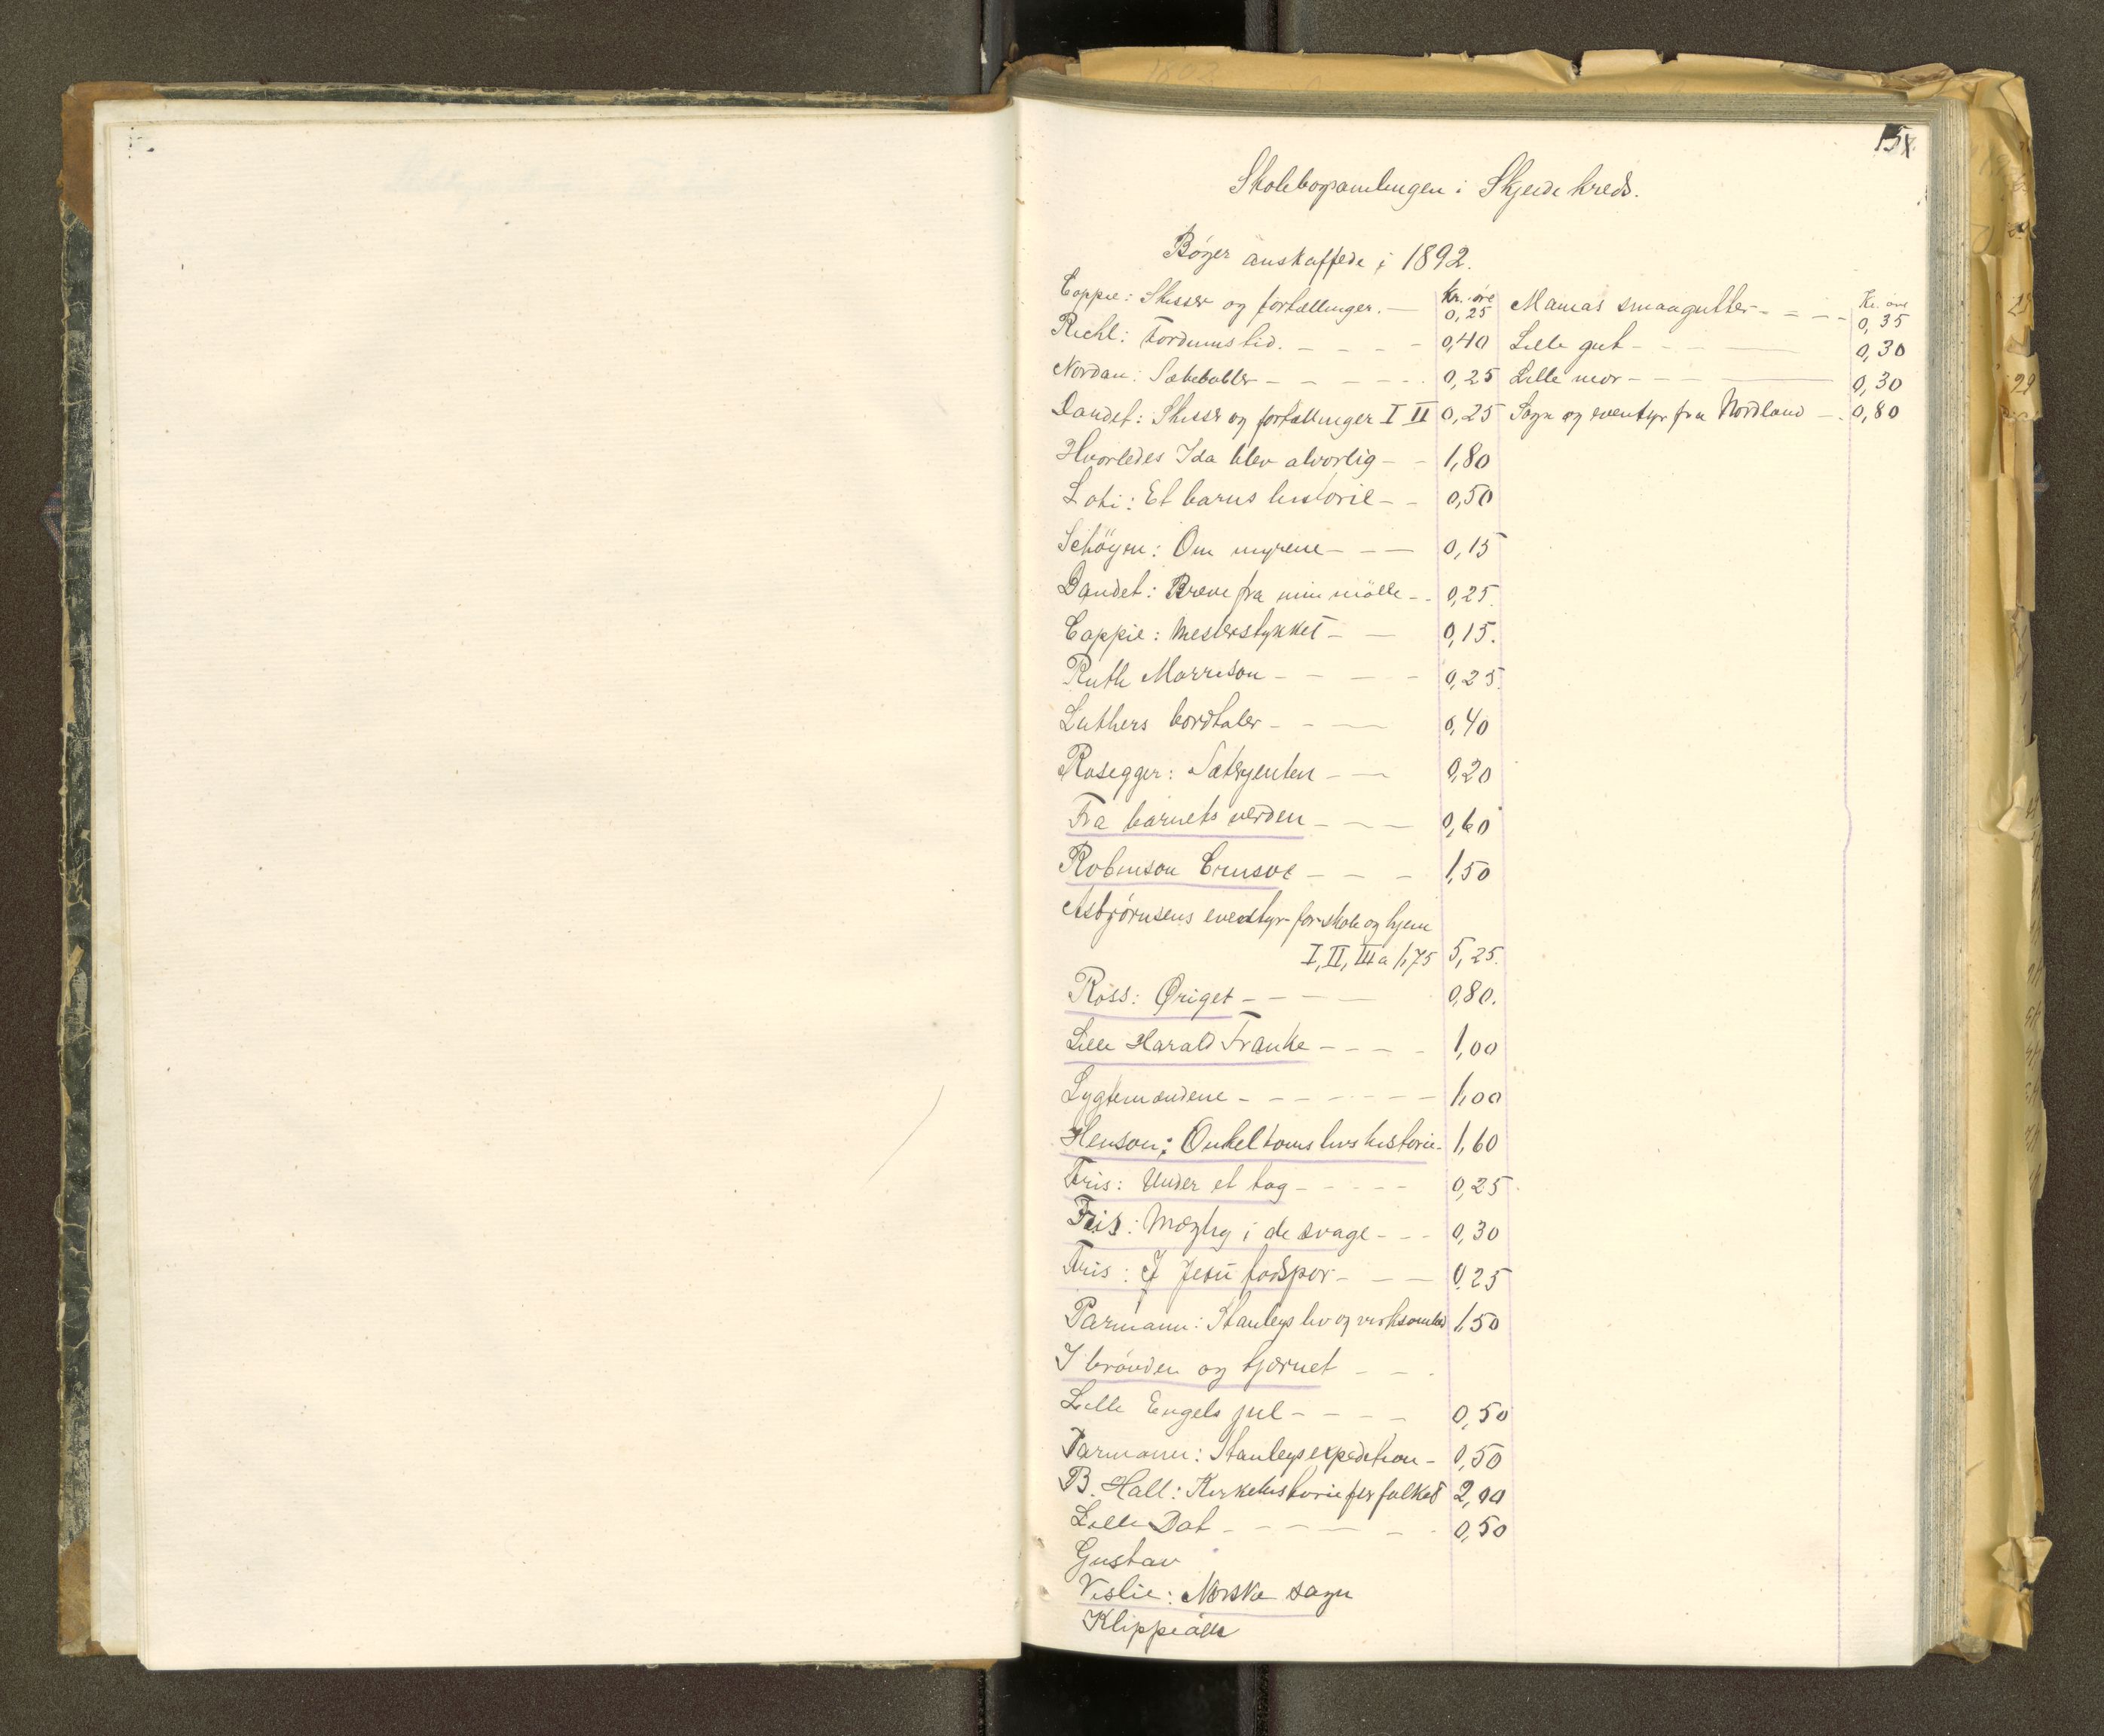 15
Skolebogsamlingen i Skjeide kreds.
Bøger anskaffede i 1892.
Kr. øre
Coppée: Skisser og fortællinger. — 0,25
Riehl: Fordums tid. - - - - 0,40
Nordau: Sæbebobler - - - - - 0,25
Daudet: Skisser og fortællinger I II 0,25
Hvorledes Ida blev alvorlig - - 1,80
Loti: Et barns historie - - 0,50
Schöyen: Om myrene - - - 0,15
Daudet: Breve fra min mölle - - 0,25.
Coppie: Mesterstykket - - 0,15.
Ruth Morrison - - - - 0,25.
Luthers bordtaler - - — 0,40
Rosegger: Sæterjenten - — 0,20
Fra barnets verden - - — 0,60
Robinson Crusoe - - - 1,50
Asbjørnsens eventyr for skole og hjem
I, II, III a 1,75 5,25.
Ross: Øriget - - - — 0,80.
Lille Harald Franke - - - - 1,00
Lygtemændene - - - - - - 1,00
Henson: Onkel toms livshistorie - 1,60
Fris: Under et tag - - - - - 0,25
Fris: Mægtig i de svage - - - 0,30
Fris: I Jesu fodspor - - — 0,25
Parmann: Stanleys liv og virksomhed 1,50
I brönden og tjernet - - -
Lille Engels jul - - - - 0,50
Parmann: Stanleys expedition - 0,50
B. Hall: Kirkehistorie for folket 2,00
Lille Dot - - - - - - 0,50
Gustav
Veslie: Norske sagn
Klippeöen
Kr. øre
Mamas smaagutter - - - - 0,35
Lille gut - - - — 0,30
Lille mor - - - — 0,30
Sagn og eventyr fra Nordland — 0,80